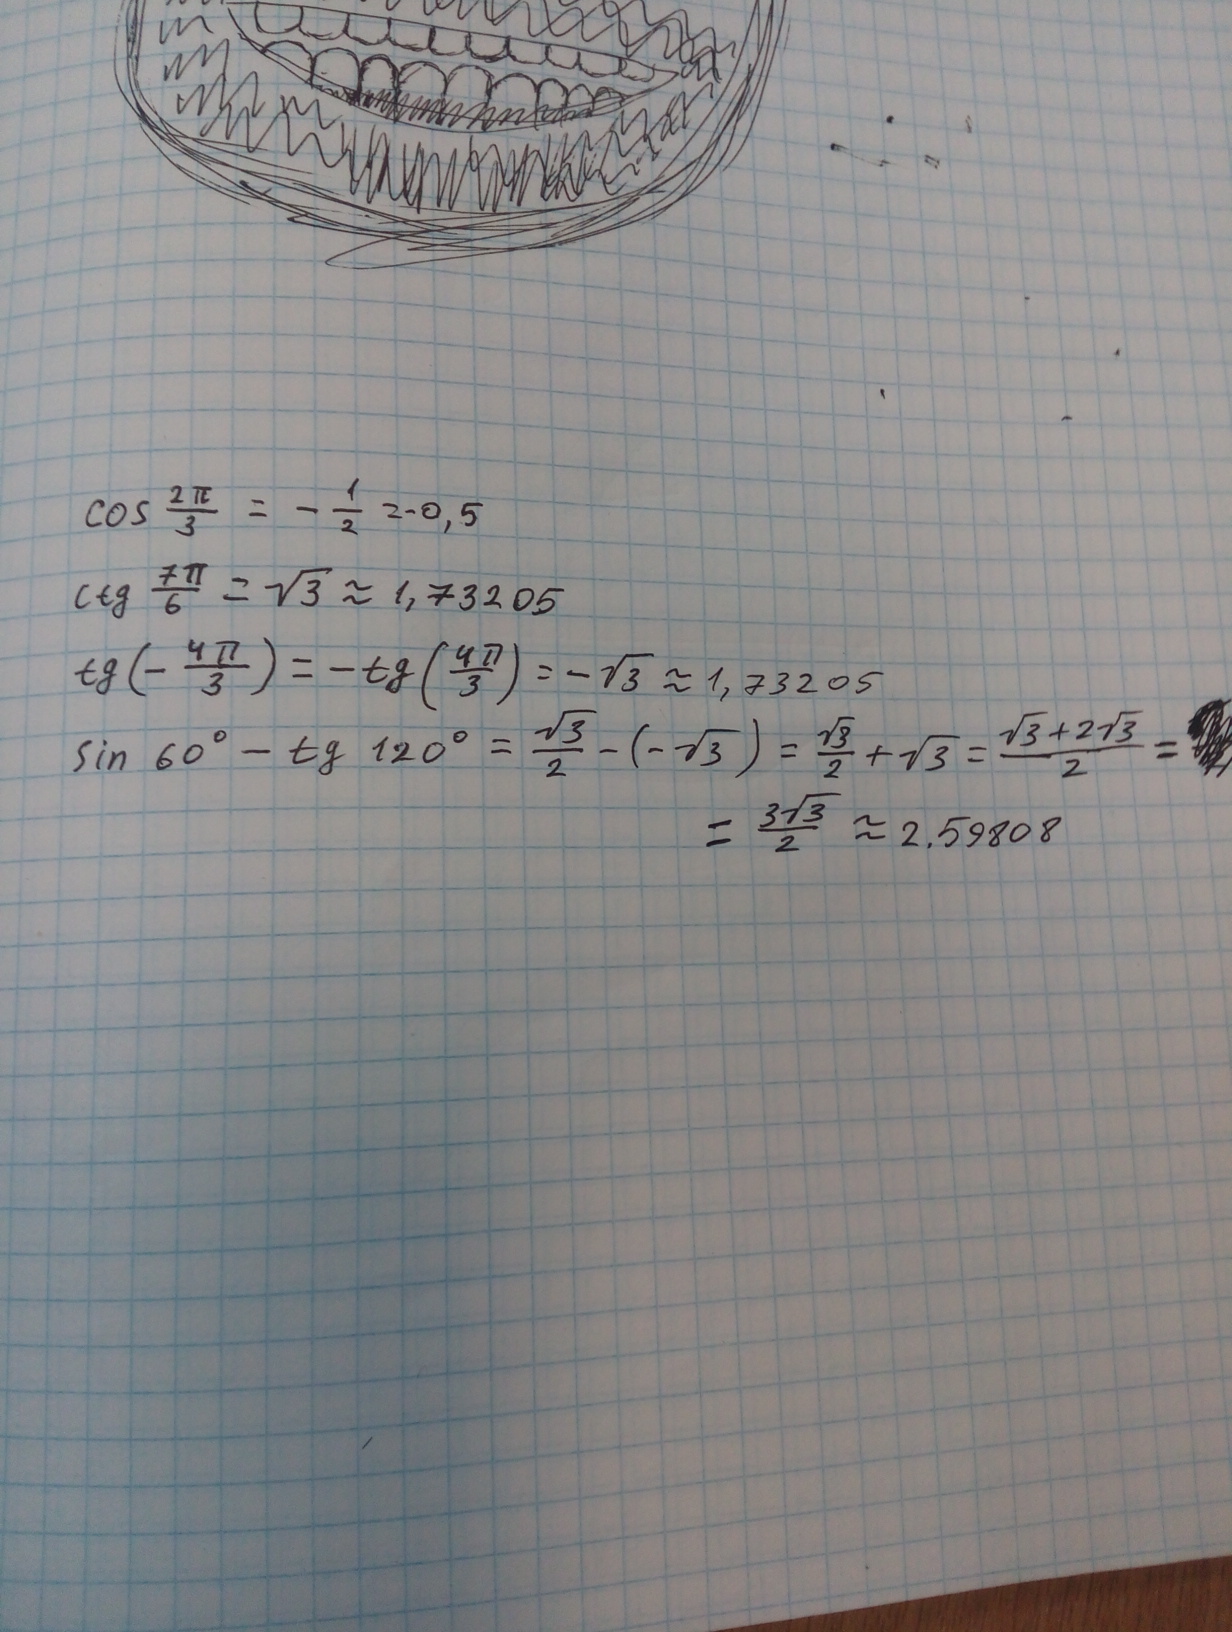 cos 2π/3 = - 1/2 = -0,5
ctg 7π/6 = √3 ≈ 1,73205
tg(- 4π/3) = -tg(4π/3) = -√3 ≈ 1,73205
sin 60° - tg 120° = √3/2 - (-√3) = √3/2 + √3 = √3+2√3/2 =
= 3√3/2 ≈ 2.59808